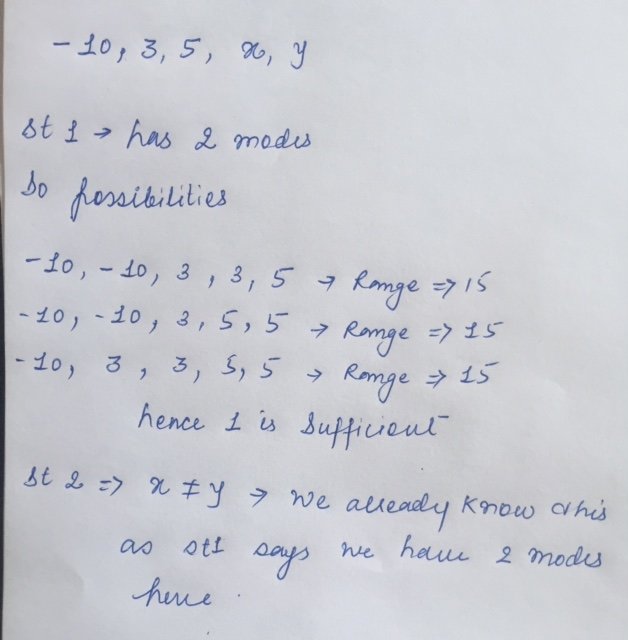 -10, 3, 5, x, y
St 1 → has 2 modes
So possibilities
-10, -10, 3, 3, 5 → Range => 15
-10, -10, 3, 5, 5 → Range => 15
-10, 3, 3, 5, 5 → Range => 15
hence 1 is Sufficient
St 2 => x ≠ y → we already know this
as st1 says we have 2 modes
here.